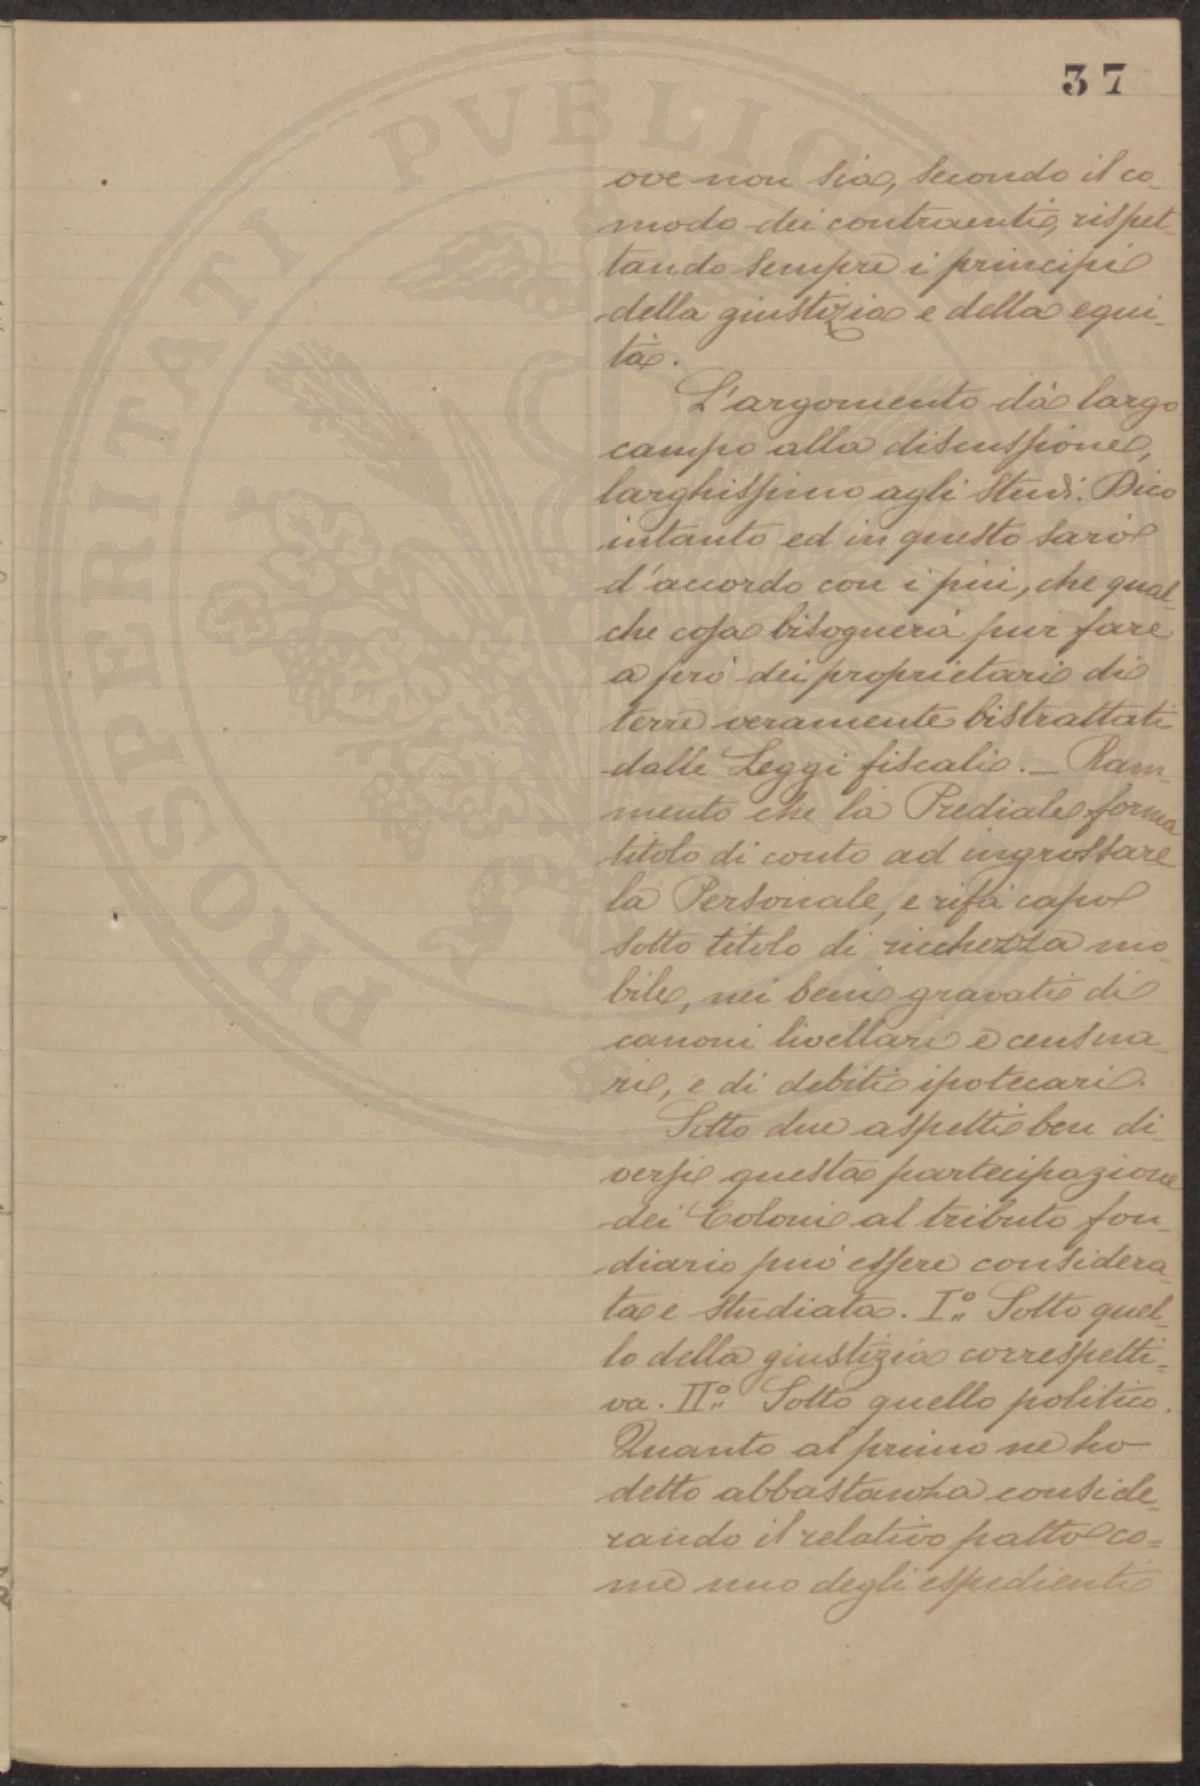 37
ove non sia, secondo il co-
modo dei contraenti, rispet-
tando sempre i principi
della giustizia e della equi-
tà.
L'argomento dà largo
campo alla discussione,
larghissimo agli studi. Dico
intanto ed in questo sarò
d'accordo con i più, che qual-
che cosa bisognerà pur fare
a prò dei proprietari di
terre veramente bistrattati
dalle Leggi fiscali. — Ram-
mento che la Prediale forma
titolo di conto ad ingrossare
la Personale, e rifà capo
sotto titolo di ricchezza mo-
bile, nei beni gravati di
canoni livellari e censua-
ri, e di debiti ipotecari.
Sotto due aspetti ben di-
versi questa partecipazione
dei Coloni al tributo fon-
diario può essere considera-
ta e studiata. I.° Sotto quel-
lo della giustizia correspetti-
va. II.° Sotto quello politico.
Quanto al primo ne ho
detto abbastanza conside-
rando il relativo patto co-
me uno degli espedienti
PROSPERITATI PVBLICAE